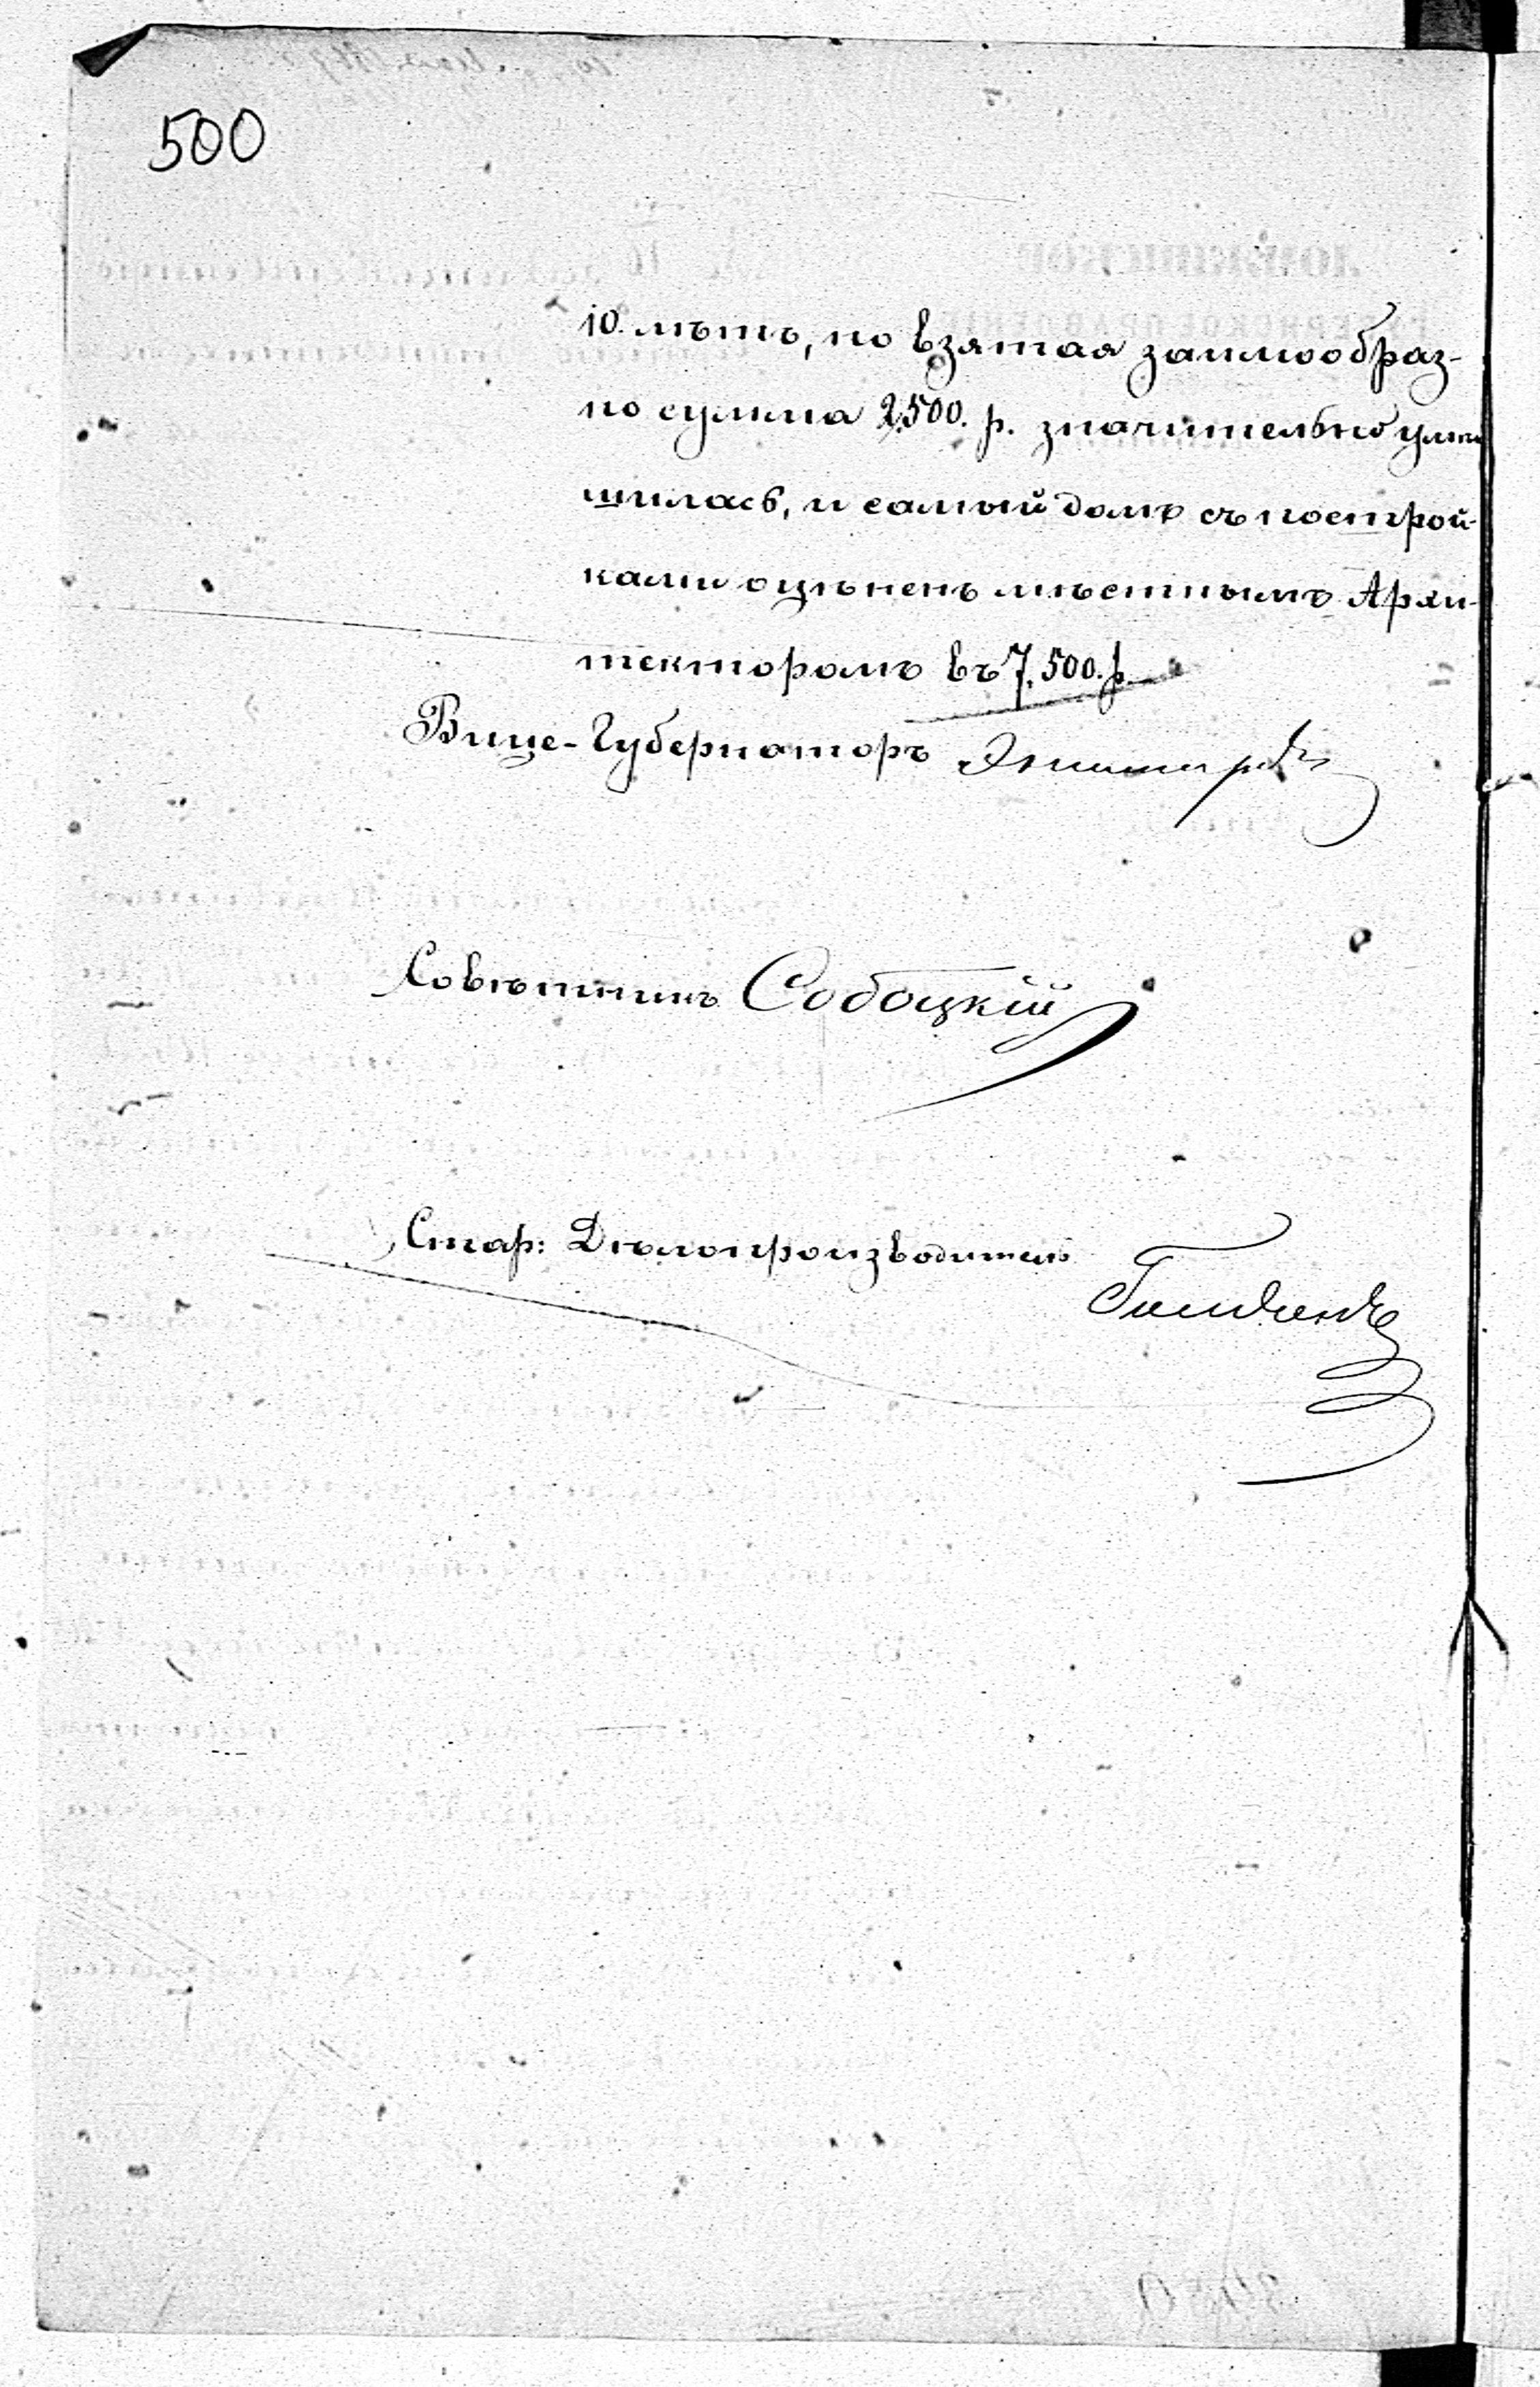 500
10. лѣтъ, но взятая заимообраз-
но сумма 2,500. р. значительно умень
шилась, и самый домъ съ построй-
ками оцѣненъ мѣстнымъ Архи-
текторомъ въ 7,500. р.
Вице-Губернаторъ
Совѣтникъ Собоцкій
Стар: Дѣлопроизводитель